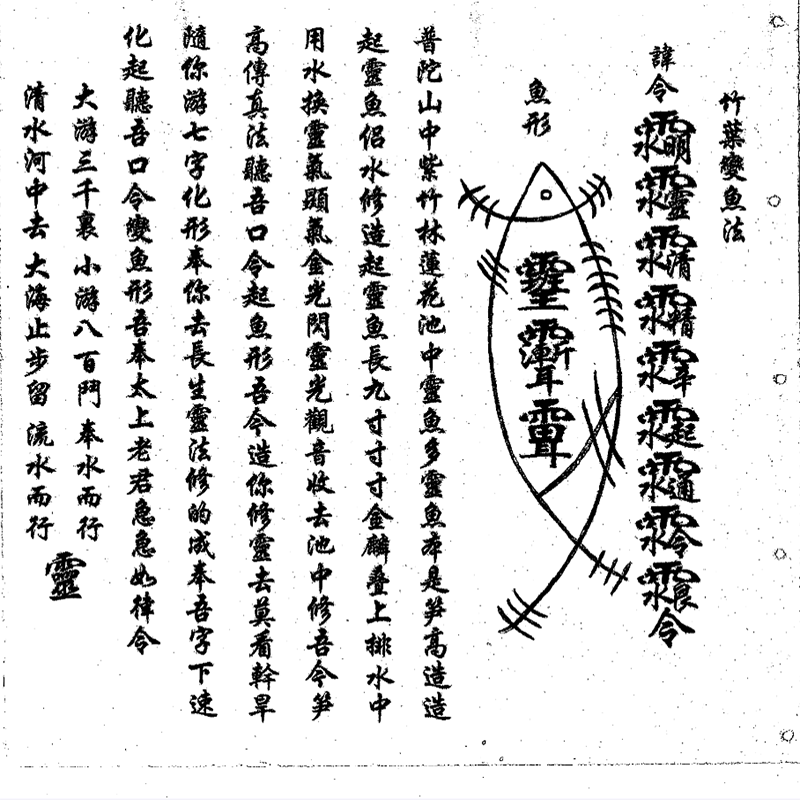 竹葉變魚法
諱令
令
魚形
普陀山中紫竹林蓮花池中靈魚多靈魚本是笋高造造
起靈魚侶水修造起靈魚長九寸寸寸金麟叠上排水中
用水換靈氣顯氣金光閃靈光觀音收去池中修吾令笋
高傳真法聽吾口令起魚形吾令造你修靈去莫看幹旱
隨你游七字化形奉你去長生靈法修的成奉吾字下速
化起聽吾口令變魚形吾奉太上老君急急如律令
大游三千裏 小游八百門 奉水而行
清水河中去 大海止步留 流水而行
靈